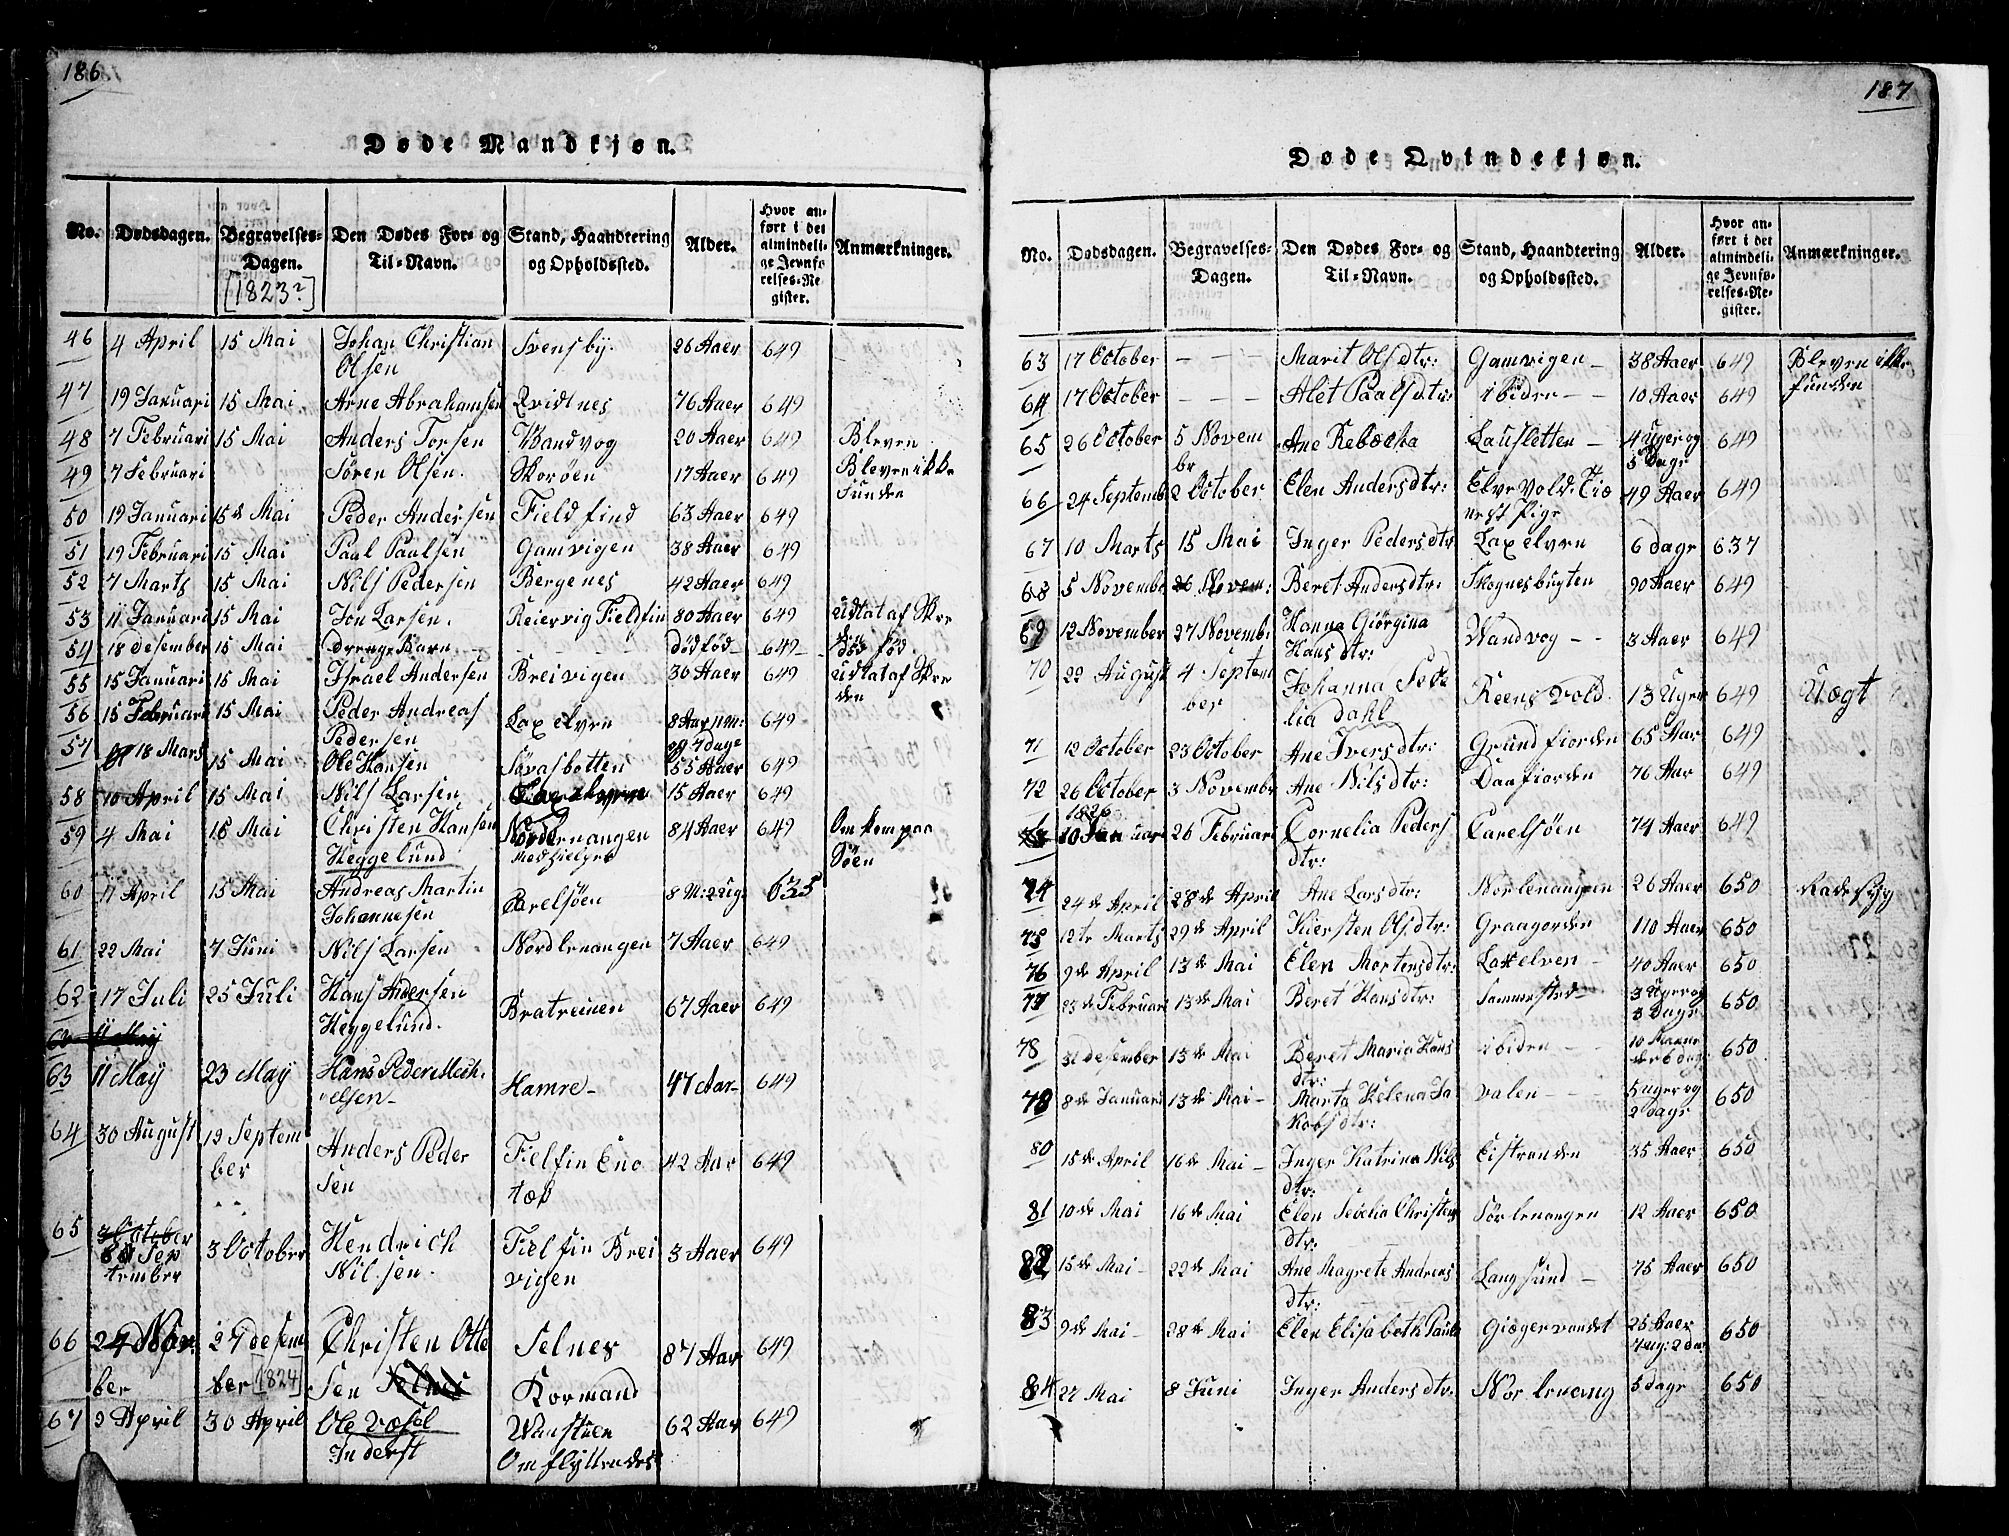 186
Døde Mandkjøn.
No. Dødsdagen. Begravelses-Dagen. Den Dødes For- og Til-Navn. Stand, Haandtering og Opholdssted. Alder. Hvor anført i det almindelige Jevnførelses-Register. Anmærkninger.
[1823?]
46 4 April 15 Mai Johan Christian Olsen Svensby. 26 Aaer 649
47 19 Januari 15 Mai Arne Abrahamsen Qvidtnes 76 Aaer 649
48 7 Februari 15 Mai Anders Torsen Wandvog 20 Aaer 649 Bleven
49 7 Februari Sören Olsen. Skoröen 17 Aaer 649 Bleven ikke Funden
50 19 Januari 15de Mai Peder Andersen Fieldfind 63 Aaer 649
51 19 Februari 15 Mai Paul Paalsen Gamvigen 38 Aaer 649
52 7 Marts 15 Mai Nils Pedersen Bergenes 42 Aaer 649
53 11 Januari 15 Mai Jon Larsen. Reiervig Fieldfin 80 Aaer 649 Udtat af Skre den
54 18 desember 15 Mai Drenge Barn - - - dödföd 649 död föd
55 15 Januari 15 Mai Israel Andersen Breivigen 30 Aaer 649 Udtat af Skre den
56 15 Februari 15 Mai Peder Andreas Pedersen Laxelven 8 Aar og 7 dage 649
57 18 Mars 15 Mai Ole Hansen Sövasbotten 55 Aaer 649
58 10 April 15 Mai Nils Larsen 15 Aaer 649
59 4 Mai 16 Mai Christen Hansen Heggelund Nordlenangen Medhielper 84 Aaer 649 Omkom paa Söen
60 11 April 15 Mai Andreas Martin Johannesen Carelsöen 8 M: 2 Ug. 635
61 22 Mai 7 Juni Nils Larsen Nordlenangen 7 Aaer 649
62 17 Juli 25 Juli Hans Andersen Heggelund. Bratreinen 67 Aaer 649
63 11 May 23 May Hans Peder Mich. elsen Hamre 47 Aar 649
64 30 August 12 September Anders Pedersen Fielfin Eno tæp 42 Aar 649
65 3 October 30 September 3 October Hendrich Nilsen. Fielfin Breivigen 3 Aaer 649
66 24 November 27 desember Christen Ottesen Selnes Selnes Kormand 87 Aar 649
[1824]
67 9 April 30 April Ole Væsel Inderst Wansteen Omflyttendes 62 Aar 649
187
Døde Qvindekjøn.
No. Dødsdagen. Begravelses-Dagen. Den Dødes For- og Til-Navn. Stand, Haandtering og Opholdssted. Alder. Hvor anført i det almindelige Jevnførelses-Register. Anmærkninger.
63 17 October - - - Marit Olsdtr: Gamvigen 38 Aaer 649 Bleven ikke funden
64 17 October - - - Alet Paalsdtr: ibiden 10 Aaer 649
65 26 October 5 Novembr Ane Rebecka Lausletten 4 Uger og 5 Dage 649
66 24 Septemb 2 October Elen Andersdtr: Elvevold Tie nest Pige 49 Aaer 649
67 10 Marts 15 Mai Inger Pedersdtr Laxelven 6 dage 637
68 5 Novembr 26 Novem: Beret Andersdtr: Skognesbugten 90 Aaer 649
69 12 November 27 Novemb: Hanna Giörgina Hansdtr: Wandvog 3 Aaer 649
70 22 August 4 September Johanna Secelia Dahl Reensvold 13 Uger 649 Uægt
71 12 October 23 October Ane Iversdtr: Grundfiorden 65 Aar 649
72 26 October 3 Novembr Ane Nilsdtr: Daafiorden 76 Aar 649
1826
73 10 Januari 26 Februari Cornelia Pedersdtr: Carelsöen 74 Aaer 649
74 24de April 28de April Ane Larsdtr: Norlenangen 26 Aaer 650 Radesyg
75 12te Marts 29de April Kiersten Olsdtr: Graagorden 110 Aaer 650
76 9de April 13de Mai Elen Mortensdtr: Laxelven 40 Aaer 650
77 23de Februari 13de Mai Beret Hansdtr: Sommersted 3 Uger og 3 Dage 650
78 31 desember 13de Mai Beret Maria Hansdtr: ibiden 10 Maaneder 6 dag: 650
79 8de Januari 13de Mai Marta Helena Jakobsdtr: Valen 5 Uger og 2 Dage 650
80 15de April 16de Mai Inger Katrina Nilsdtr: Eistranden 35 Aaer 650
81 10de Mai 16de Mai Elen Secelia Christensdtr: Sörlenangen 12 Aaer 650
82 15de Mai 22de Mai Ane Magrete Andreasdtr: Langsund 75 Aaer 650
83 9de Mai 28de Mai Elen Elisabeth Pauls Giægervandet 25 Aaer 7 ug: 2 da 650
84 27 Mai 8 Juni Inger Andersdtr: Norlenang 5 dage 650